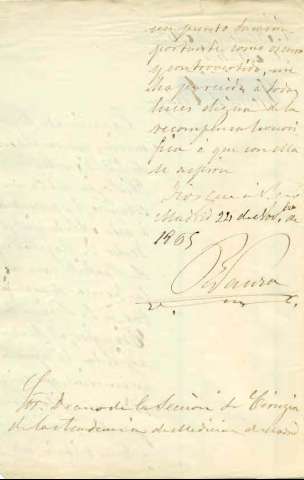 un punto tan im-
portante como oscuro
y controvertido, me
ha parecido á todas
luces digna de la
recompensa honorí
fica á que con ella
se aspira.
Dios gue á
Madrid 22 de Nov.bre de
1865
Sor. Decano de la Sección de Cirugía
de la Academia de Medicina de Madrid